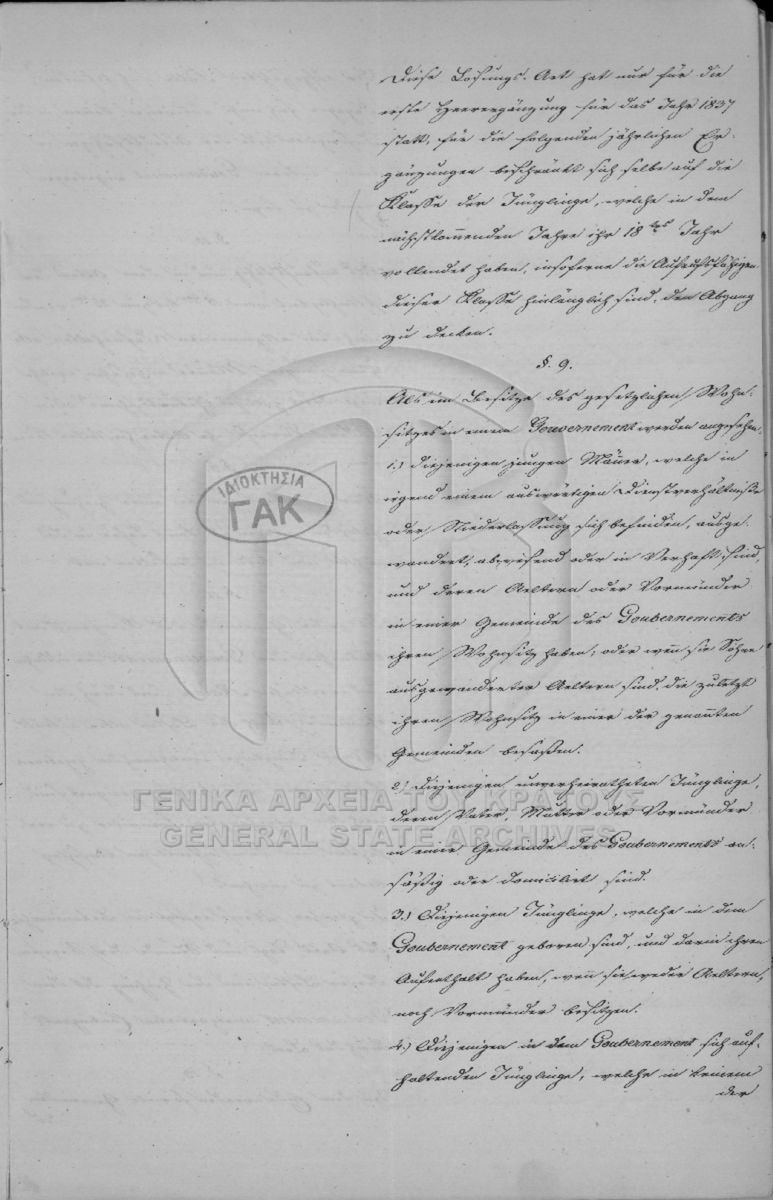 Diese Losungs-Art hat nur für die
erste Heerergänzung für das Jahr 1837
statt, für die folgenden jährlichen Er-
gänzungen beschränkt sich selbe auf die
Klasse der Jünglinge, welche in dem
nächstkom̄enden Jahre ihr 18tes Jahr
vollendet haben, insoferne die Aufrufsfähigen
dieser Klasse hinlänglich sind, den Abgang
zu decken.
§. 9.
Als im Besitze des gesetzlichen Wohn-
sitzes in einem Gouvernement werden angesehen:
1.) diejenigen jungen Män̄er, welche in
irgend einem auswärtigen Dienstverhältniße
oder Niederlassung sich befinden, ausge-
wandert, abwesend oder in Verhaft sind,
und deren Aeltern oder Vormünder
in einer Gemeinde des Gouvernements
ihren Wohnsitz haben; oder wen̄ sie Söhne
ausgewanderter Aeltern sind, die zuletzt
ihren Wohnsitz in einer der genan̄ten
Gemeinden besaßen.
2.) Diejenigen unverheiratheten Jünglinge,
deren Vater, Mutter oder Vormünder
in einer Gemeinde des Gouvernements an-
säßig oder domicilirt sind.
3.) Diejenigen Jünglinge, welche in dem
Gouvernement geboren sind, und darin ihren
Aufenthalt haben, wen̄ sie weder Aeltern,
noch Vormünder besitzen.
4.) Diejenigen in dem Gouvernement sich auf-
haltenden Jünglinge, welche in keinem
der
ΙΔΙΟΚΤΗΣΙΑ
ΓΑΚ
ΓΕΝΙΚΑ ΑΡΧΕΙΑ ΤΟΥ ΚΡΑΤΟΥΣ
GENERAL STATE ARCHIVES